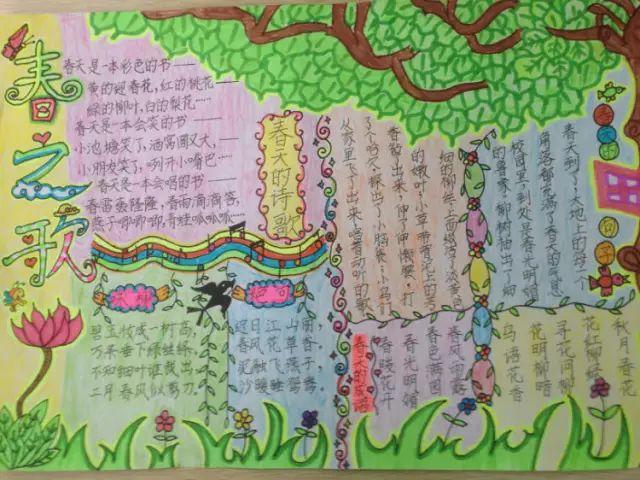 春之歌
春天是一本彩色的书——
黄的迎春花,红的桃花——
绿的柳叶,白的梨花……
春天是一本会笑的书——
小池塘笑了,酒窝圆又大,——
小朋友笑了,咧开小嘴巴…
春天是一本会唱的书——
春雷轰隆隆,春雨滴滴答,
燕子唧唧唧,青蛙呱呱呱…
春天的诗歌
咏柳
碧玉妆成一树高,
万条垂下绿丝绦。
不知细叶谁裁出,
二月春风似剪刀。
绝句
迟日江山丽,
春风花草香。
泥融飞燕子,
沙暖睡鸳鸯。
句子
春天到了,大地上的每一个
角落都充满了春天的气息
校园里,到处是春光明媚
的景象。柳树抽出了细
细的柳丝,上面缀满了淡黄色
的嫩叶;小草带着泥土的芳
香钻了出来,伸了伸懒腰,打
了个哈欠,探出了小脑袋;小鸟们
从家里飞了出来,唱着动听的歌
秋月春花
花红柳绿
寻花问柳
花明柳暗
鸟语花香
春风雨露
春色满园
春光明媚
春暖花开
春天的成语